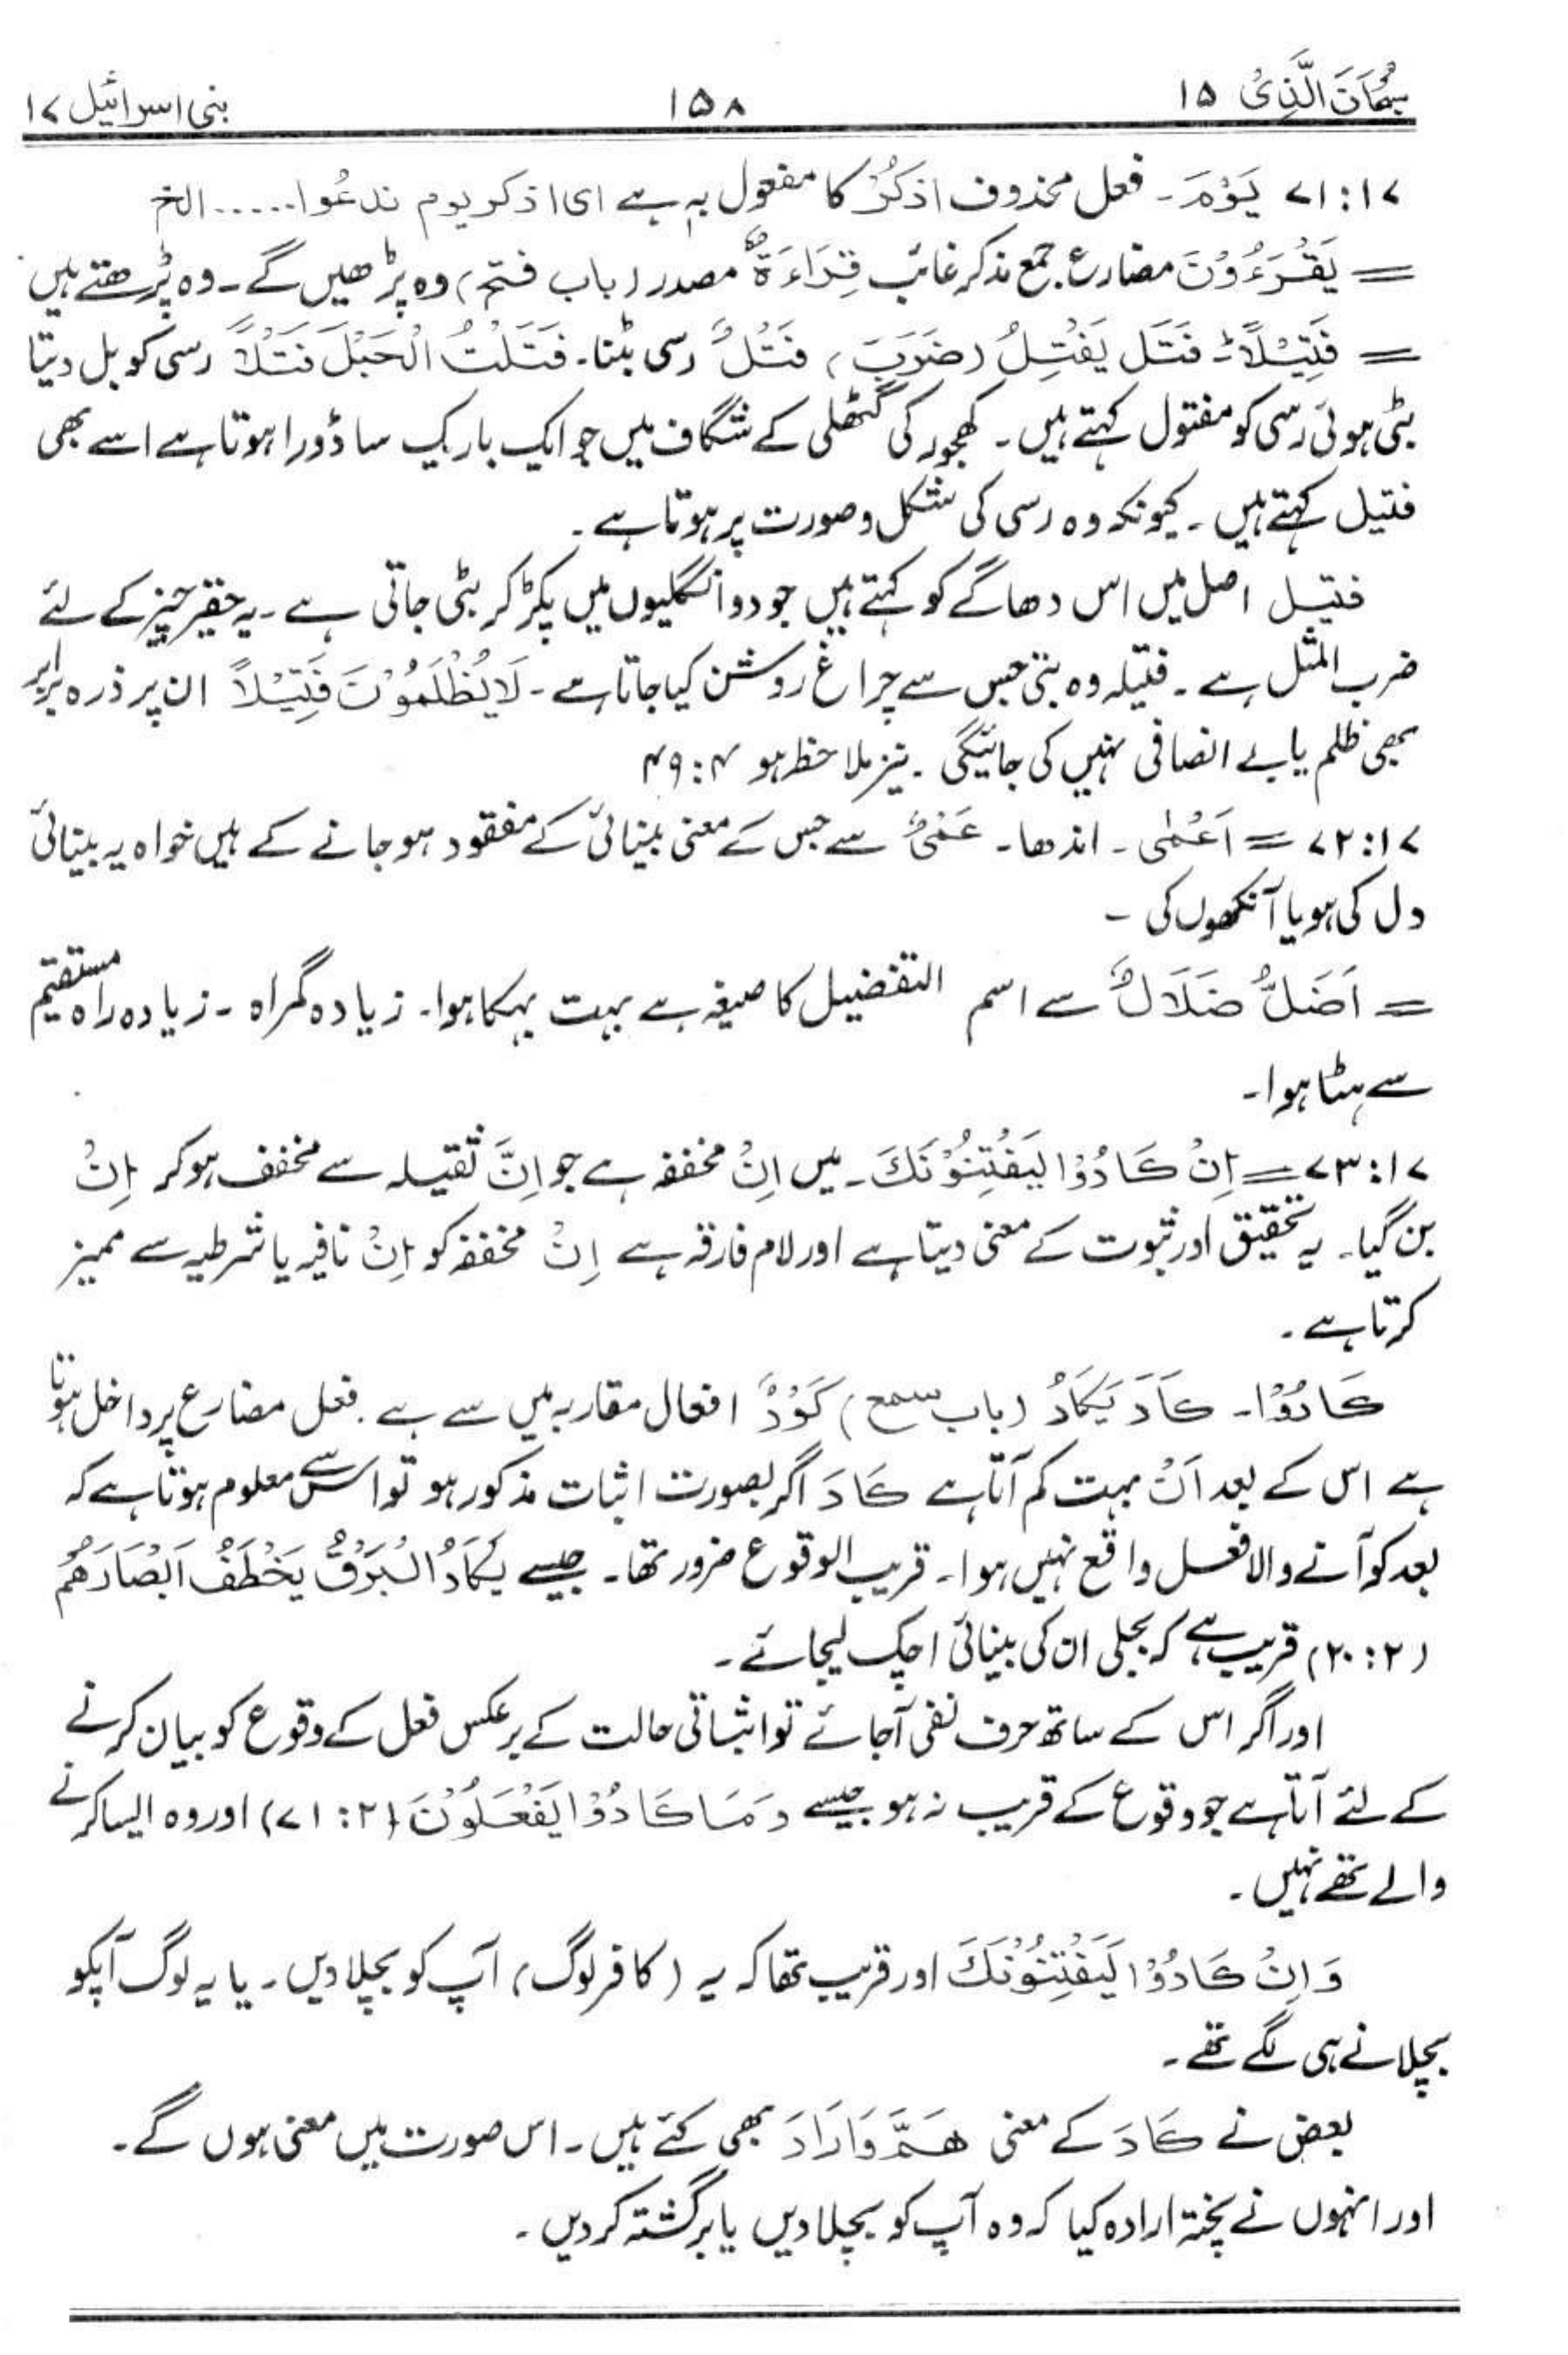 سُبْحَانَ الَّذِیْ ۱۵ ۱۵۸ بنی اسرائیل ۱۷
۱۷: ۷۱ یَوْمَ۔ فعل محذوف اذکُرْ کا مفعول بہٖ ہے ای اذکر یوم ندعُوا ..... الخ
= یَقْرَءُوْنَ مضارع جمع مذکر غائب قِرَاءَةٌ مصدر (باب فتح) وہ پڑھیں گے۔ وہ پڑھتے ہیں
= فَتِیْلًا۔ فَتَلَ یَفْتِلُ (ضَرَبَ) فَتْلٌ رسی بٹنا۔ فَتَلْتُ الْحَبْلَ فَتْلًا رسی کو بل دینا
بٹی ہوئی رسی کو مفتول کہتے ہیں۔ کھجور کی گٹھلی کے شگاف میں جو ایک باریک سا ڈورا ہوتا ہے اسے بھی
فتیل کہتے ہیں۔ کیونکہ وہ رسی کی شکل و صورت پر ہوتا ہے۔
فتیل اصل میں اس دھاگے کو کہتے ہیں جو دو انگلیوں میں پکڑ کر بٹی جاتی ہے۔ یہ حقیر چیز کے لئے
ضرب المثل ہے۔ فتیلہ وہ بتی جس سے چراغ روشن کیا جاتا ہے۔ لَا یُظْلَمُوْنَ فَتِیْلًا ان پر ذرہ برابر
بھی ظلم یا بے انصافی نہیں کی جائیگی۔ نیز ملاحظہ ہو ۴: ۴۹
۱۷: ۷۲ = اَعْمٰی۔ اندھا۔ عَمًی سے جس کے معنی بینائی کے مفقود ہو جانے کے ہیں خواہ یہ بینائی
دل کی ہو یا آنکھوں کی۔
= اَضَلُّ ضَلَالٌ سے اسم التفضیل کا صیغہ ہے بہت بہکا ہوا۔ زیادہ گمراہ۔ زیادہ راہ مستقیم
سے ہٹا ہوا۔
۱۷: ۷۳ = اِنْ کَادُوْا لَیَفْتِنُوْنَكَ۔ میں اِنْ مخففہ ہے جو اِنَّ ثقیلہ سے مخفف ہو کر اِنْ
بن گیا۔ یہ تحقیق اور ثبوت کے معنی دیتا ہے اور لام فارقہ ہے اِنْ مخففہ کو اِنْ نافیہ یا شرطیہ سے ممیز
کرتا ہے۔
کَادُوْا۔ کَادَ یَکَادُ (باب سمع) کَوْدٌ افعال مقاربہ میں سے ہے۔ فعل مضارع پر داخل ہوتا
ہے اس کے بعد اَنْ بہت کم آتا ہے کَادَ اگر بصورت اثبات مذکور ہو تو اس سے معلوم ہوتا ہے کہ
بعد کو آنے والا فعل واقع نہیں ہوا۔ قریب الوقوع ضرور تھا۔ جیسے یَکَادُ الْبَرْقُ یَخْطَفُ اَبْصَارَھُمْ
(۲: ۲۰) قریب ہے کہ بجلی ان کی بینائی اچک لیجائے۔
اور اگر اس کے ساتھ حرف نفی آجائے تو اثباتی حالت کے برعکس فعل کے وقوع کو بیان کرنے
کے لئے آتا ہے جو وقوع کے قریب نہ ہو جیسے وَمَا کَادُوْا یَفْعَلُوْنَ (۲: ۷۱) اور وہ ایسا کرنے
والے تھے نہیں۔
وَاِنْ کَادُوْا لَیَفْتِنُوْنَكَ اور قریب تھا کہ یہ (کافر لوگ) آپ کو بچلا دیں۔ یا یہ لوگ آپکو
بچلانے ہی لگے تھے۔
بعض نے کَادَ کے معنی ھَمَّ وَاَرَادَ بھی کئے ہیں۔ اس صورت میں معنی ہوں گے۔
اور انہوں نے پختہ ارادہ کیا کہ وہ آپ کو بچلا دیں یا برگشتہ کر دیں۔